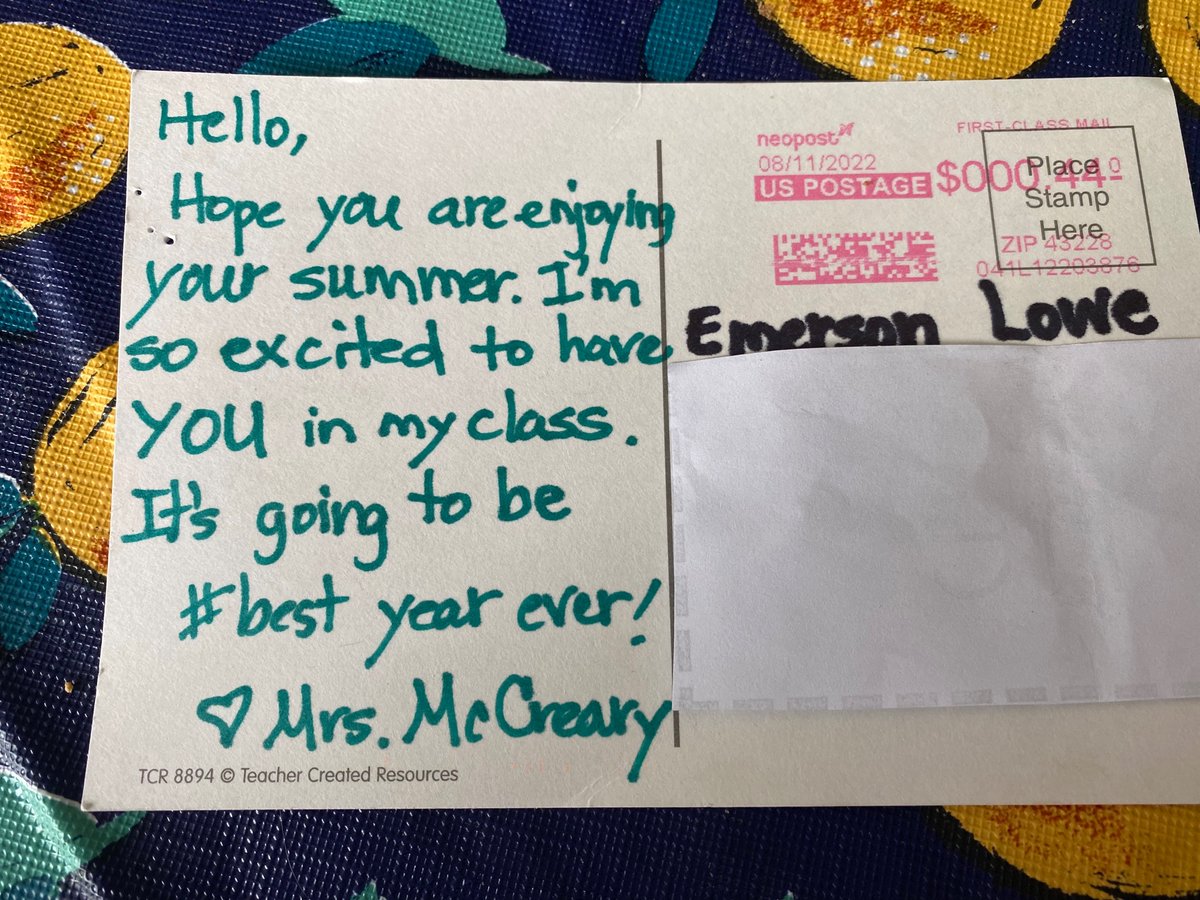 Hello,
Hope you are enjoying
your summer. I'm
so excited to have
YOU in my class.
It's going to be
#best year ever!
♡ Mrs. McCreary
TCR 8894 © Teacher Created Resources
neopost
08/11/2022
US POSTAGE
FIRST-CLASS MAIL
$000.44⁰
Place
Stamp
Here
ZIP 43228
041L12203876
Emerson Lowe